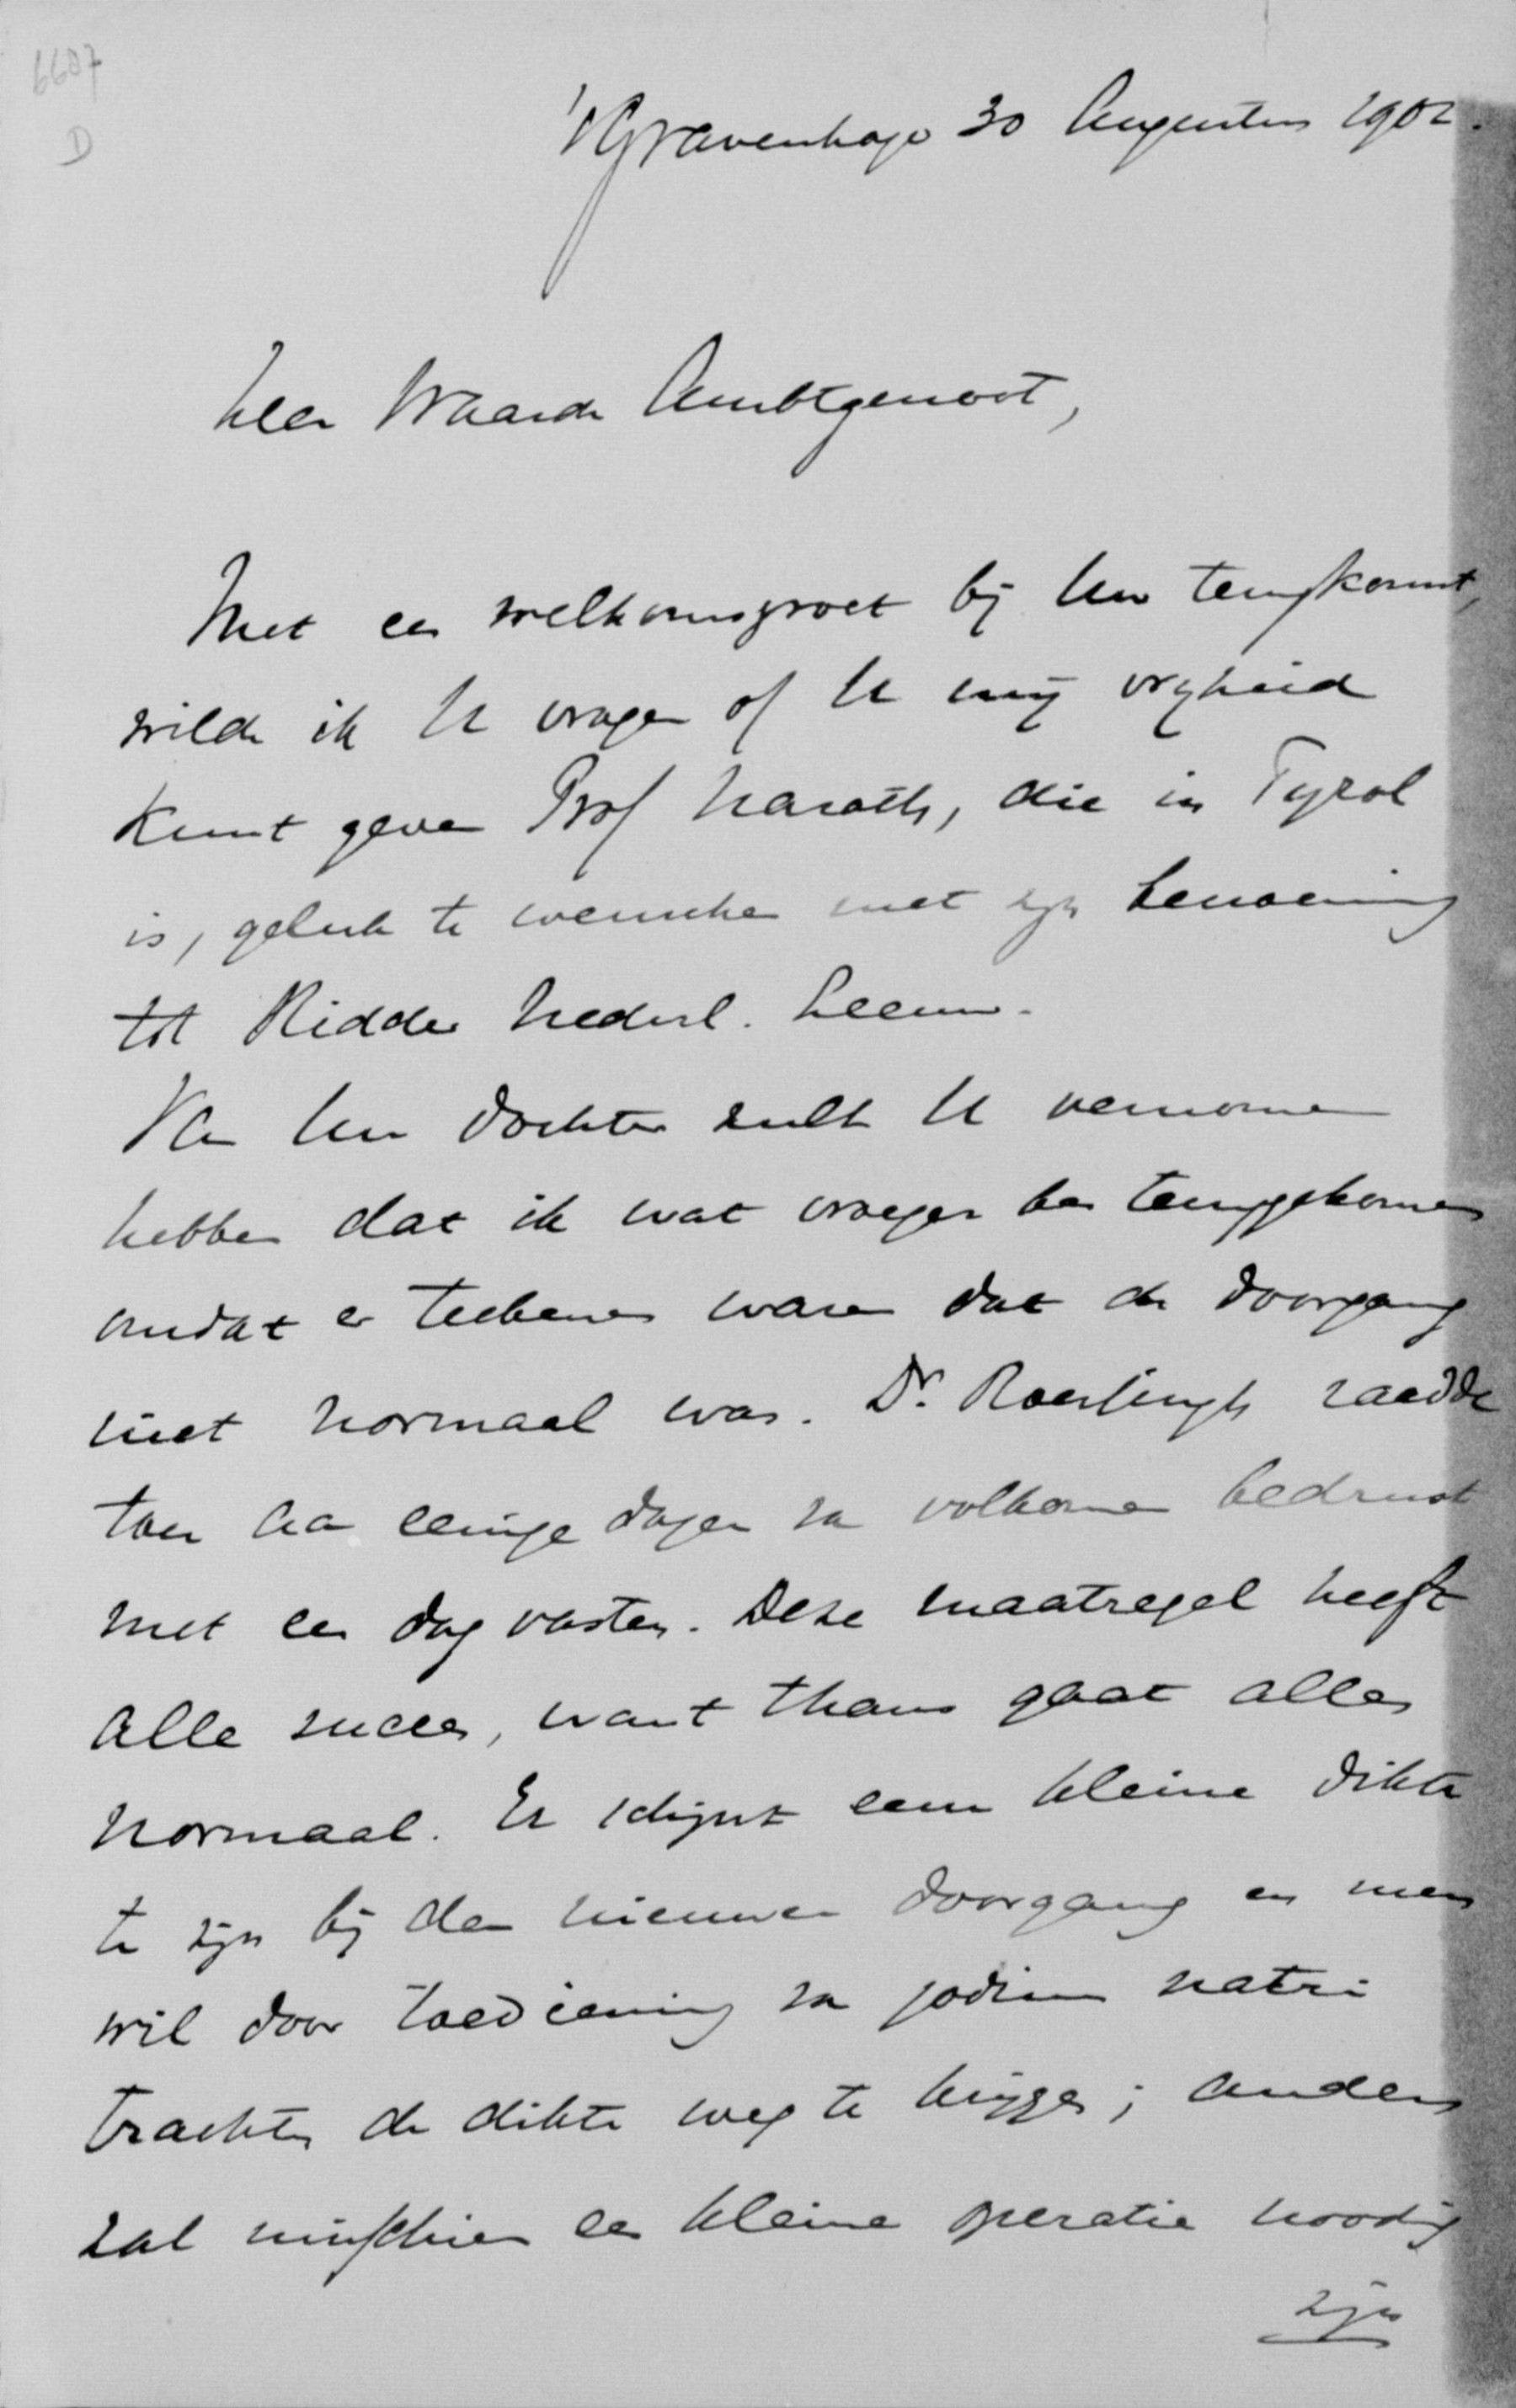 6607
D
'sGravenhage 30 Augustus 1902.
Zeer Waarde Ambtgenoot,
Met een welkomsgroet bij Uw terugkomst,
wilde ik U vragen of U mij vrijheid
kunt geven Prof Narath, die in Tyrol
is, geluk te wenschen met zijn benoeming
tot Ridder Nederl. Leeuw.
Van Uw dochter zult U vernomen
hebben dat ik wat vroeger ben teruggekomen
omdat er teekenen waren dat de doorgang
niet normaal was. Dr. Roessingh raadde
toen na eenige dagen van volkomen bedrust
met een dag vasten. Deze maatregel heeft
alle succes, want thans gaat alles
normaal. Er schijnt eene kleine dikte
te zijn bij den nieuwen doorgang en men
wil door toediening van jodium natri
trachten de dikte weg te krijgen; anders
zal misschien een kleine operatie noodig
zijn